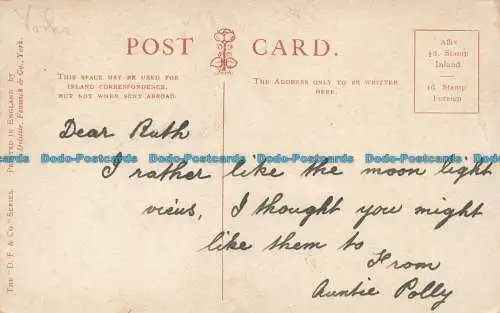 Yorks
POST CARD.
THIS SPACE MAY BE USED FOR
INLAND CORRESPONDENCE,
BUT NOT WHEN SENT ABROAD.
THE ADDRESS ONLY TO BE WRITTEN
HERE.
Affix
½d. Stamp
Inland
1d. Stamp
Foreign
Dear Ruth
I rather like the moon light
views, I thought you might
like them to
From
Auntie Polly
THE "D. F. & Co." SERIES. PRINTED IN ENGLAND by
Delittle, Fenwick & Co., York.
Dodo-Postcards Dodo-Postcards Dodo-Postcards Dodo-Postcards Dodo-Postcards